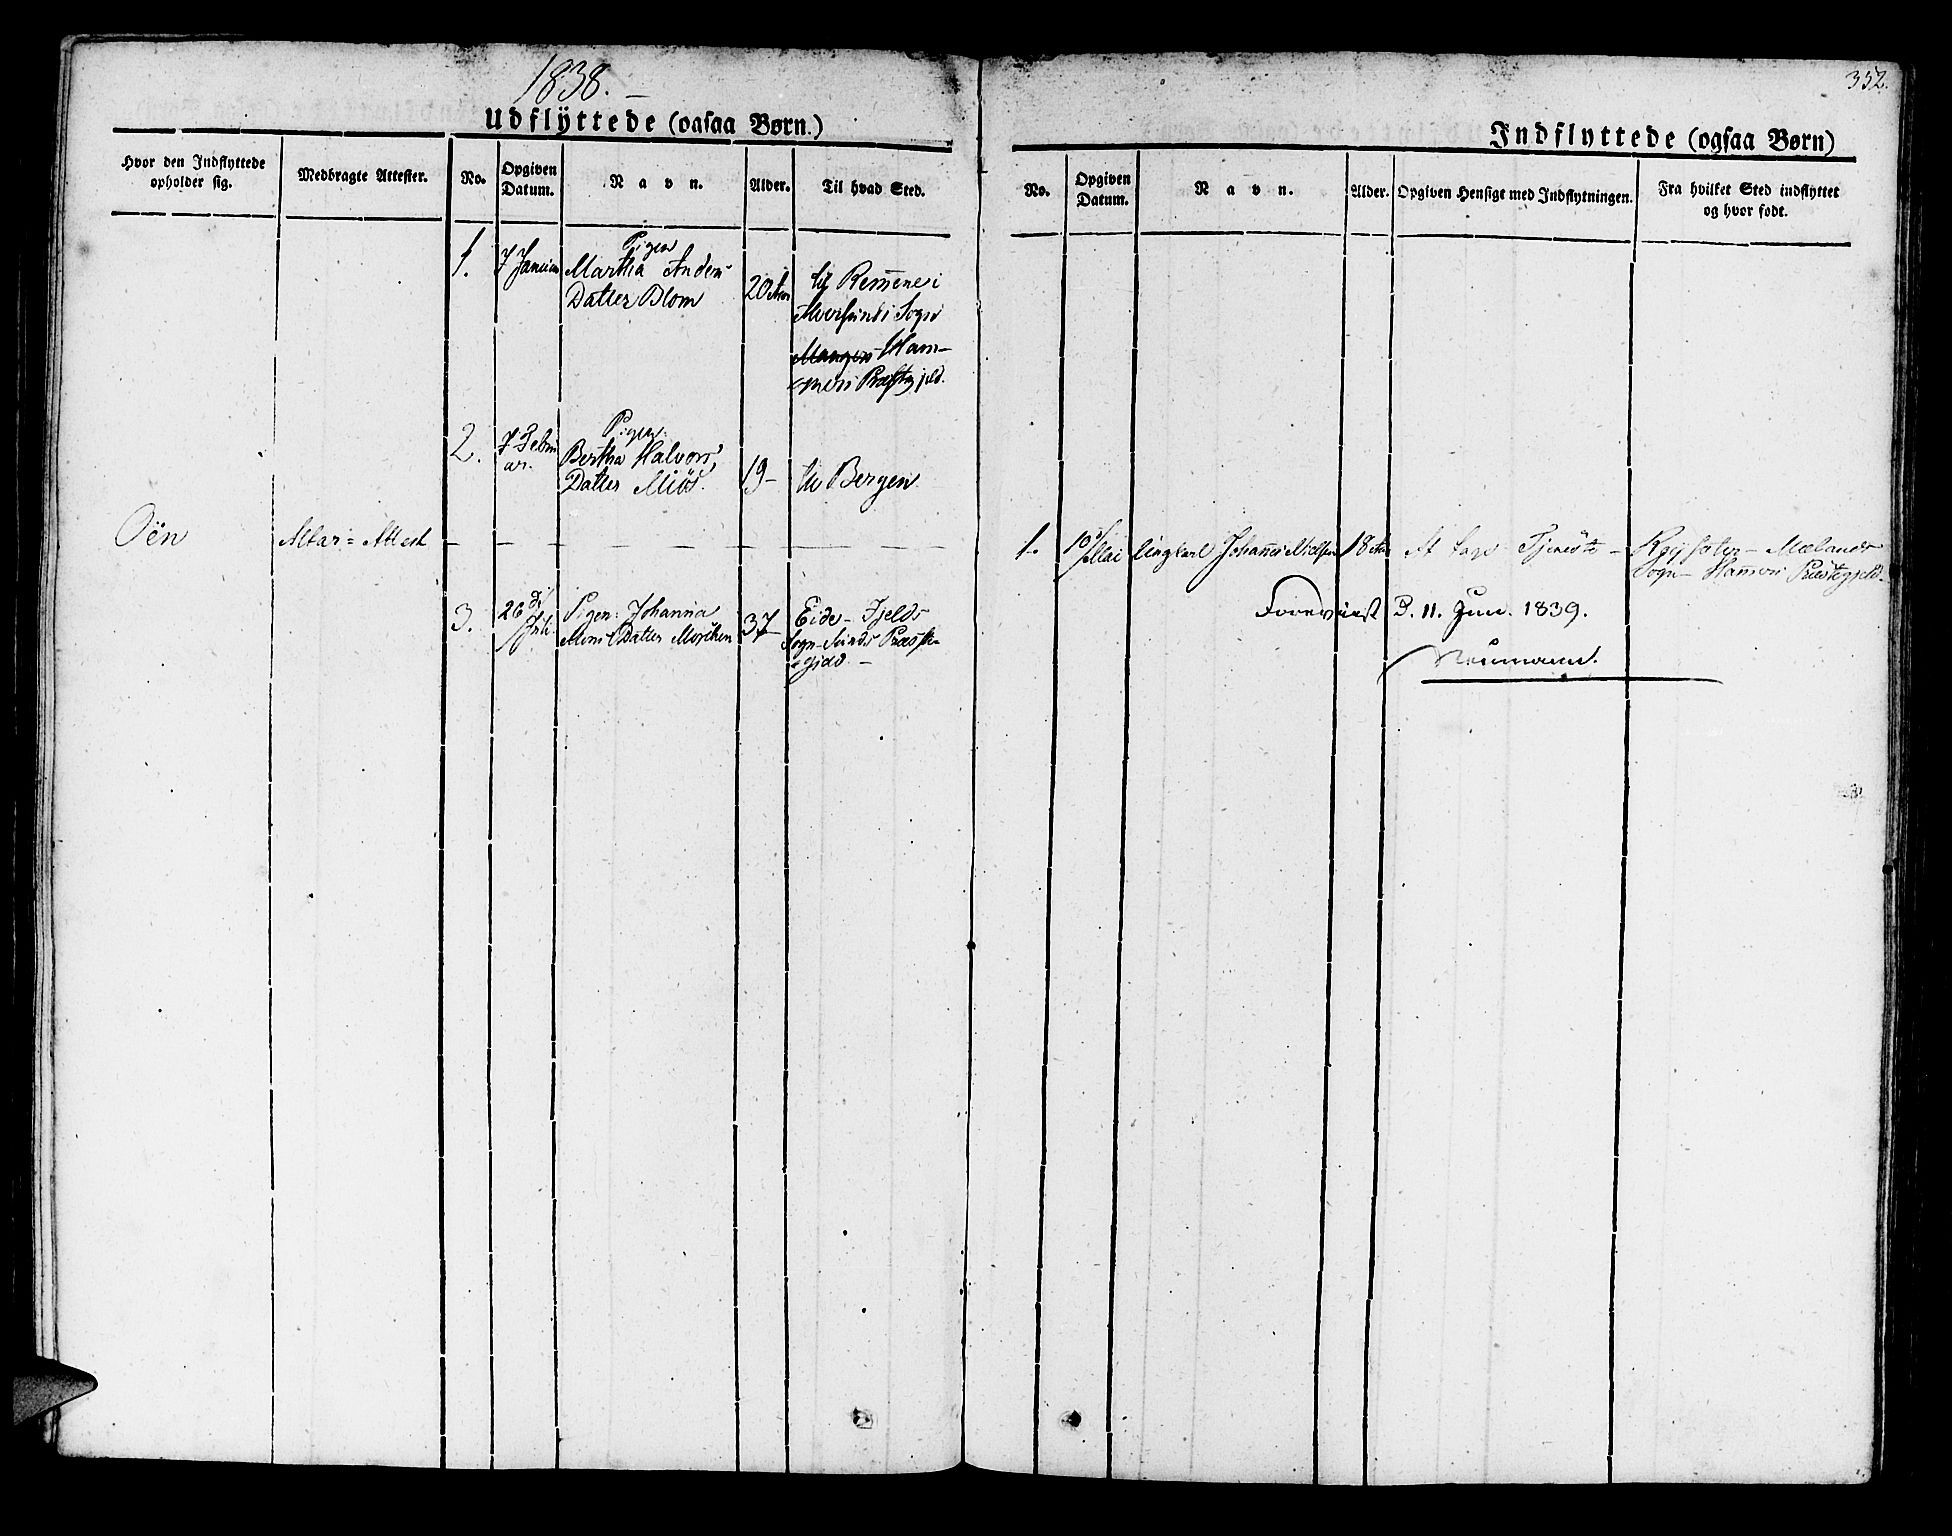 1838. –
Udflyttede (ogsaa Børn.)
Hvor den Indflyttede opholder sig.
Medbragte Attester.
No.
Opgiven Datum.
Navn.
Alder.
Til hvad Sted.
1.
7 Januar
Pigen
Martha Anders
Datter Blom
20 Aar
til Remene i
Alversunds Sogn
Mangers Ham-
mers Præstegjeld.
2.
7 Febru
ar.
Pigen:
Bertha Halvors
Datter Miøs.
19 –
til Bergen.
Oën
Altar= Attest
3.
26 di
Juli
Pigen: Johanna
Mons Datter
37
Eide – Fjelds
Sogn – Sunds Præste-
gjeld –
352.
Indflyttede (ogsaa Børn)
No.
Opgiven Datum.
Navn.
Alder.
Opgiven Hensigt med Indflytningen.
Fra hvilket Sted indflyttet og hvor født.
1.
10
Mai
Ungkarl Johannes Nielsen
18 Aar
At tage Tjeneste –
Mælands
Sogn – Hammers Præstegjeld.
Foreviist D. 11. Jun. 1839.
Neumann.